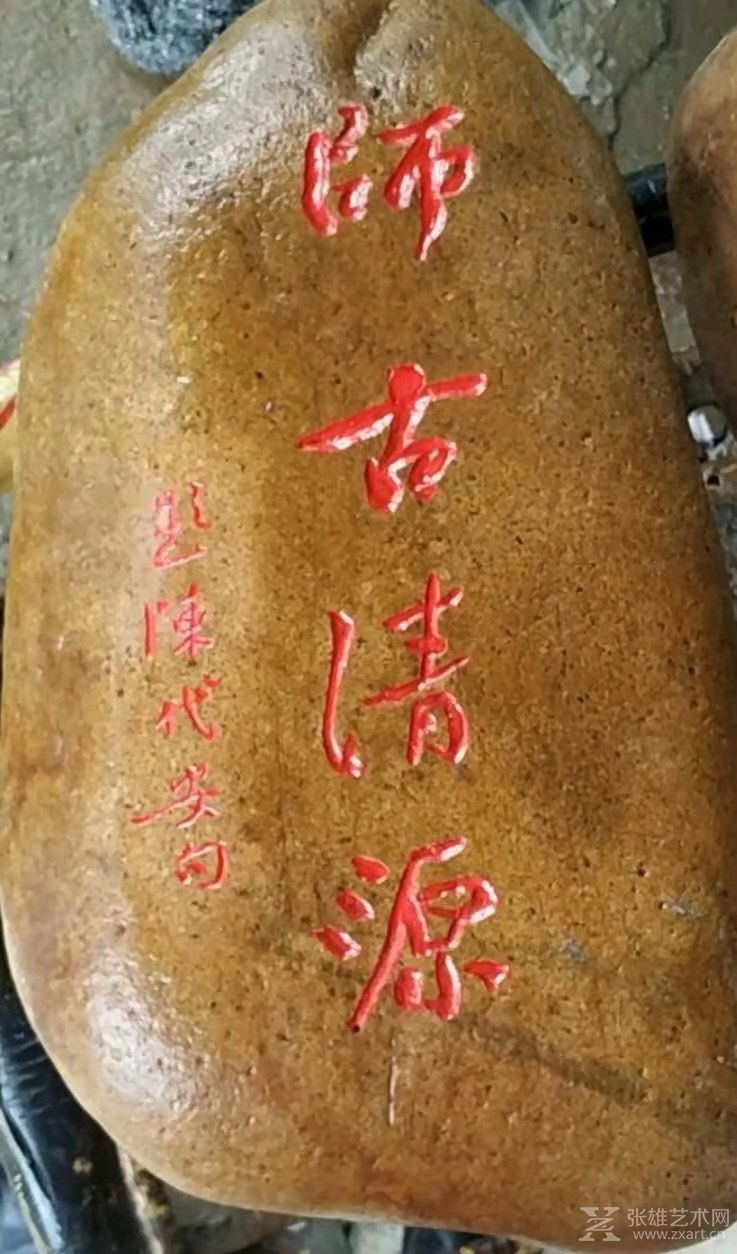 師古清源
題陳代安句
张雄艺术网
www.zxart.cn